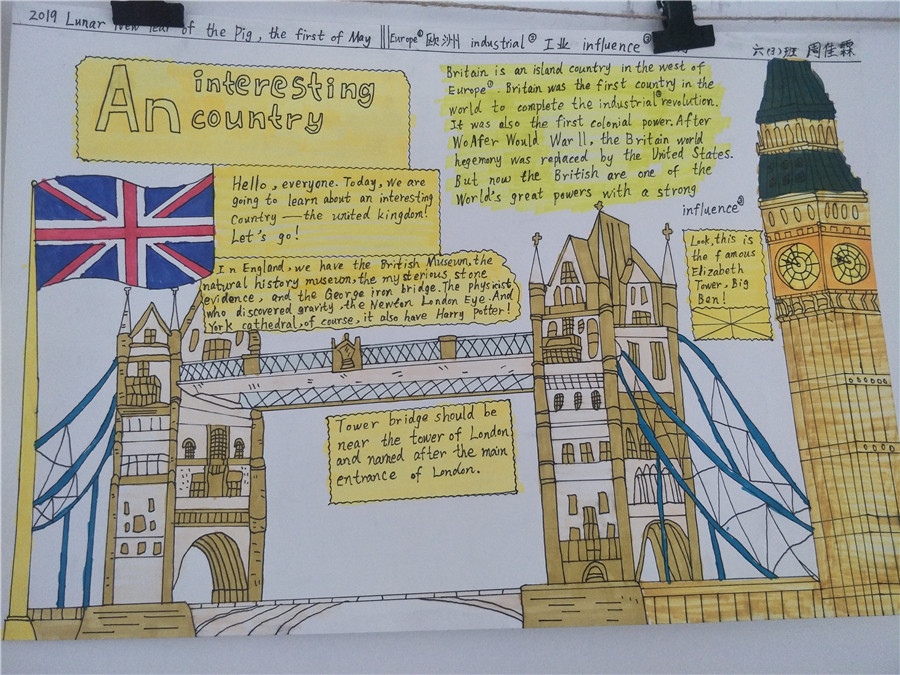 2019 Lunar New Year of the Pig, the first of May Europe① 欧洲 industrial② 工业 influence③
六(3)班 周佳霖
An interesting
country
Britain is an island country in the west of
Europe①. Britain was the first country in the
world to complete the industrial②revolution.
It was also the first colonial power. After
WoAfer Would War II, the Britain world
hegemony was replaced by the United States.
But now the British are one of the
World's great powers with a strong
influence③
Hello, everyone. Today, we are
going to learn about an interesting
Country — the united kingdom!
Let's go!
In England, we have the British Museum, the
natural history museum, the mysterious stone
evidence, and the George iron bridge. The physicist
who discovered gravity the Newton London Eye. And
York cathedral, of course, it also have Harry Potter!
Look, this is
the famous
Elizabeth
Tower, Big
Ben!
Tower bridge should be
near the tower of London
and named after the main
entrance of London.